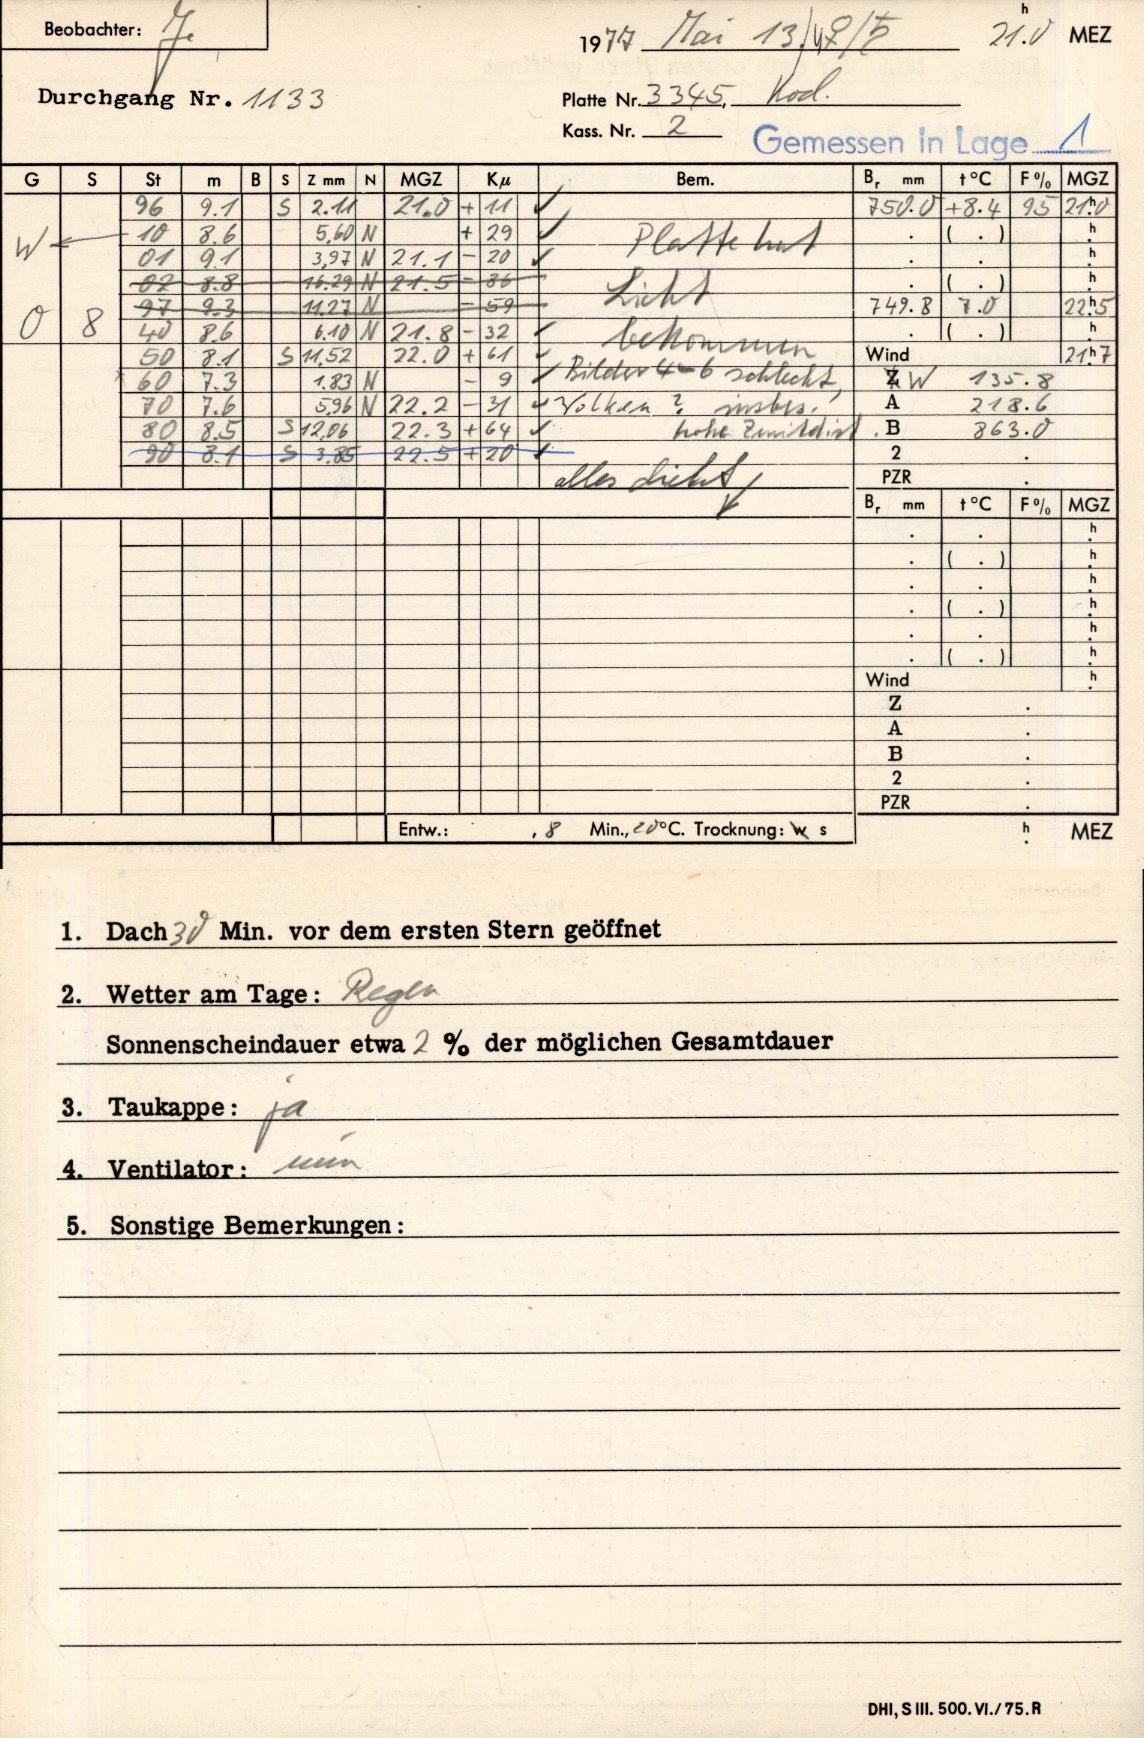 Beobachter: J.
1977 Mai 13./ 21.0 h MEZ
Durchgang Nr. 1133
Platte Nr. 3345, Kod.
Kass. Nr. 2
Gemessen in Lage 1
G S St m B S Z mm N MGZ Kμ Bem. Br mm t°C F% MGZ
96 9.1 S 2.11 21.0 + 11 ✓ 750.0 +8.4 95 21h.0
W 10 8.6 5,60 N + 29 ✓ Platte hat . ( . ) h.
01 9.1 3,97 N 21.1 - 20 ✓ . . h.
02 8.8 16.29 N 21.5 - 86 Licht . ( . ) h.
97 9.3 11.27 N - 59 749.8 7.0 22h.5
O 8 40 8.6 6.10 N 21.8 - 32 ✓ bekommen . ( . ) h.
50 8.1 S 11.52 22.0 + 61 ✓ Wind 21h.7
60 7.3 1.83 N - 9 ✓ Bilder 4-6 schlecht, Z W 135.8
70 7.6 5,96 N 22.2 - 31 ✓ Wolken ? insbes. A 218.6
80 8.5 S 12,06 22.3 + 64 ✓ hohe Zenitdist. B 863.0
90 8.1 S 3,85 22.5 + 20 ✓ 2 .
alles dicht PZR .
Br mm t°C F% MGZ
. . h.
. ( . ) h.
. . h.
. ( . ) h.
. . h.
. ( . ) h.
Wind h.
Z .
A .
B .
2 .
PZR .
Entw.: , 8 Min., 20°C. Trocknung: w s h. MEZ
1. Dach 30 Min. vor dem ersten Stern geöffnet
2. Wetter am Tage: Regen
Sonnenscheindauer etwa 2 % der möglichen Gesamtdauer
3. Taukappe: ja
4. Ventilator: nein
5. Sonstige Bemerkungen:
DHI, S III. 500. VI./75. R